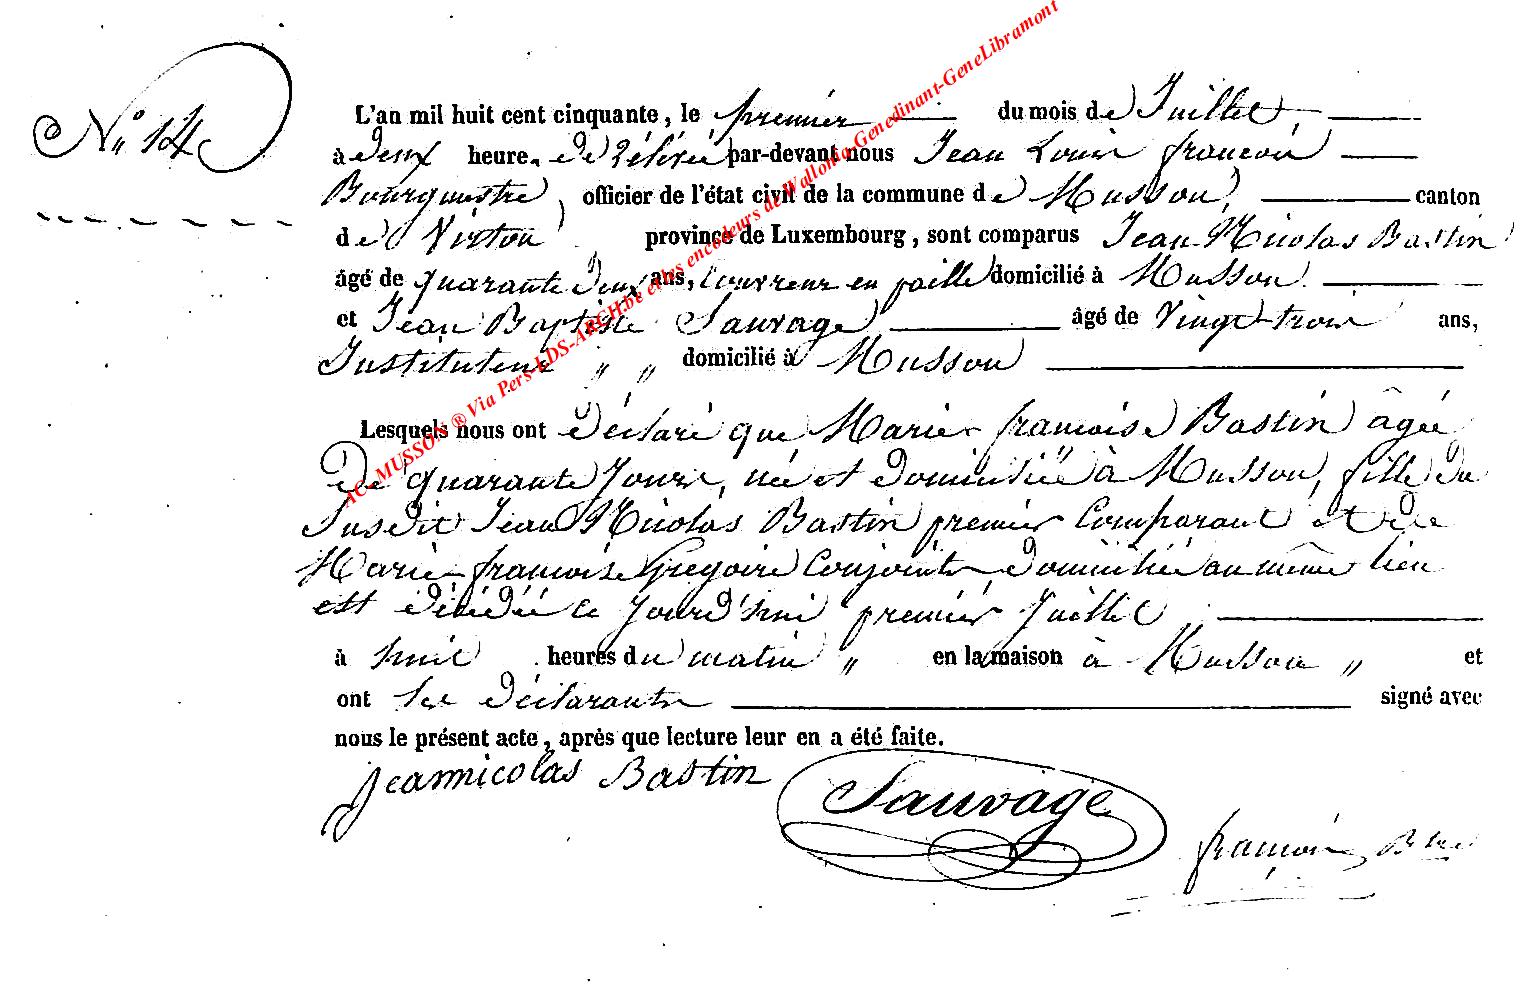 N° 14
L'an mil huit cent cinquante, le premier du mois de Juillet,
à deux heures de rélévée par-devant nous Jean Louis françois
Bourgmestre, officier de l'état civil de la commune de Musson, canton
de Virton province de Luxembourg, sont comparus Jean Nicolas Bastin
âgé de quarante deux ans, Couvreur en paille domicilié à Musson
et Jean Baptiste Sauvage âgé de Vingt-trois ans,
Instituteur " " domicilié à Musson
Lesquels nous ont déclaré que Marie françoise Bastin âgée
De quarante Jours, née et domiciliée à Musson, fille du
Susdit Jean Nicolas Bastin premier Comparant et de
Marie françoise Grégoire Conjoints domiciliés au même lieu
est décédée ce Jourd'hui premier Juillet
à huit heures du matin " en la maison à Musson " et
ont les déclarants signé avec
nous le présent acte, après que lecture leur en a été faite.
Jeannicolas Bastin
Sauvage
françois, B
AC-MUSSON ® Via Pers-LDS-ARCH.be et les encodeurs de Wallonia-Genedinant-GeneLibramont